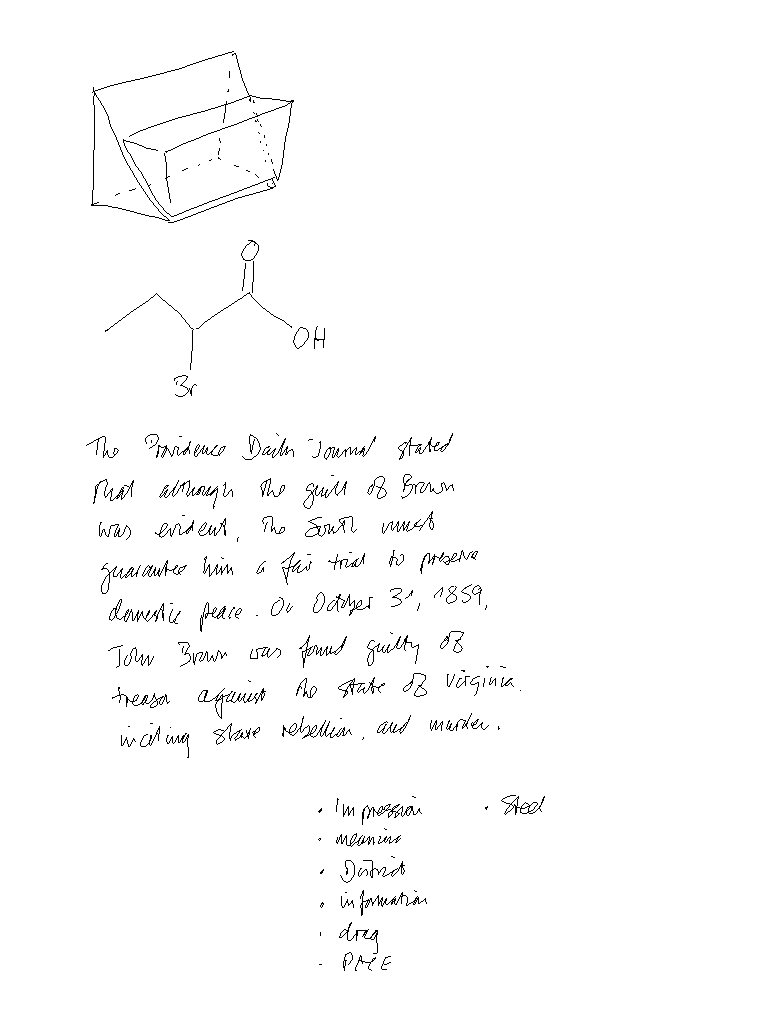 O
OH
Br
The Providence Daily Journal stated
that although the guilt of Brown
was evident, the South must
guarantee him a fair trial to preserve
domestic peace. On October 31, 1859,
John Brown was found guilty of
treason against the state of Virginia,
inciting slave rebellion, and murder.
• Impression • Steel
• meaning
• District
• information
• drag
• PACE